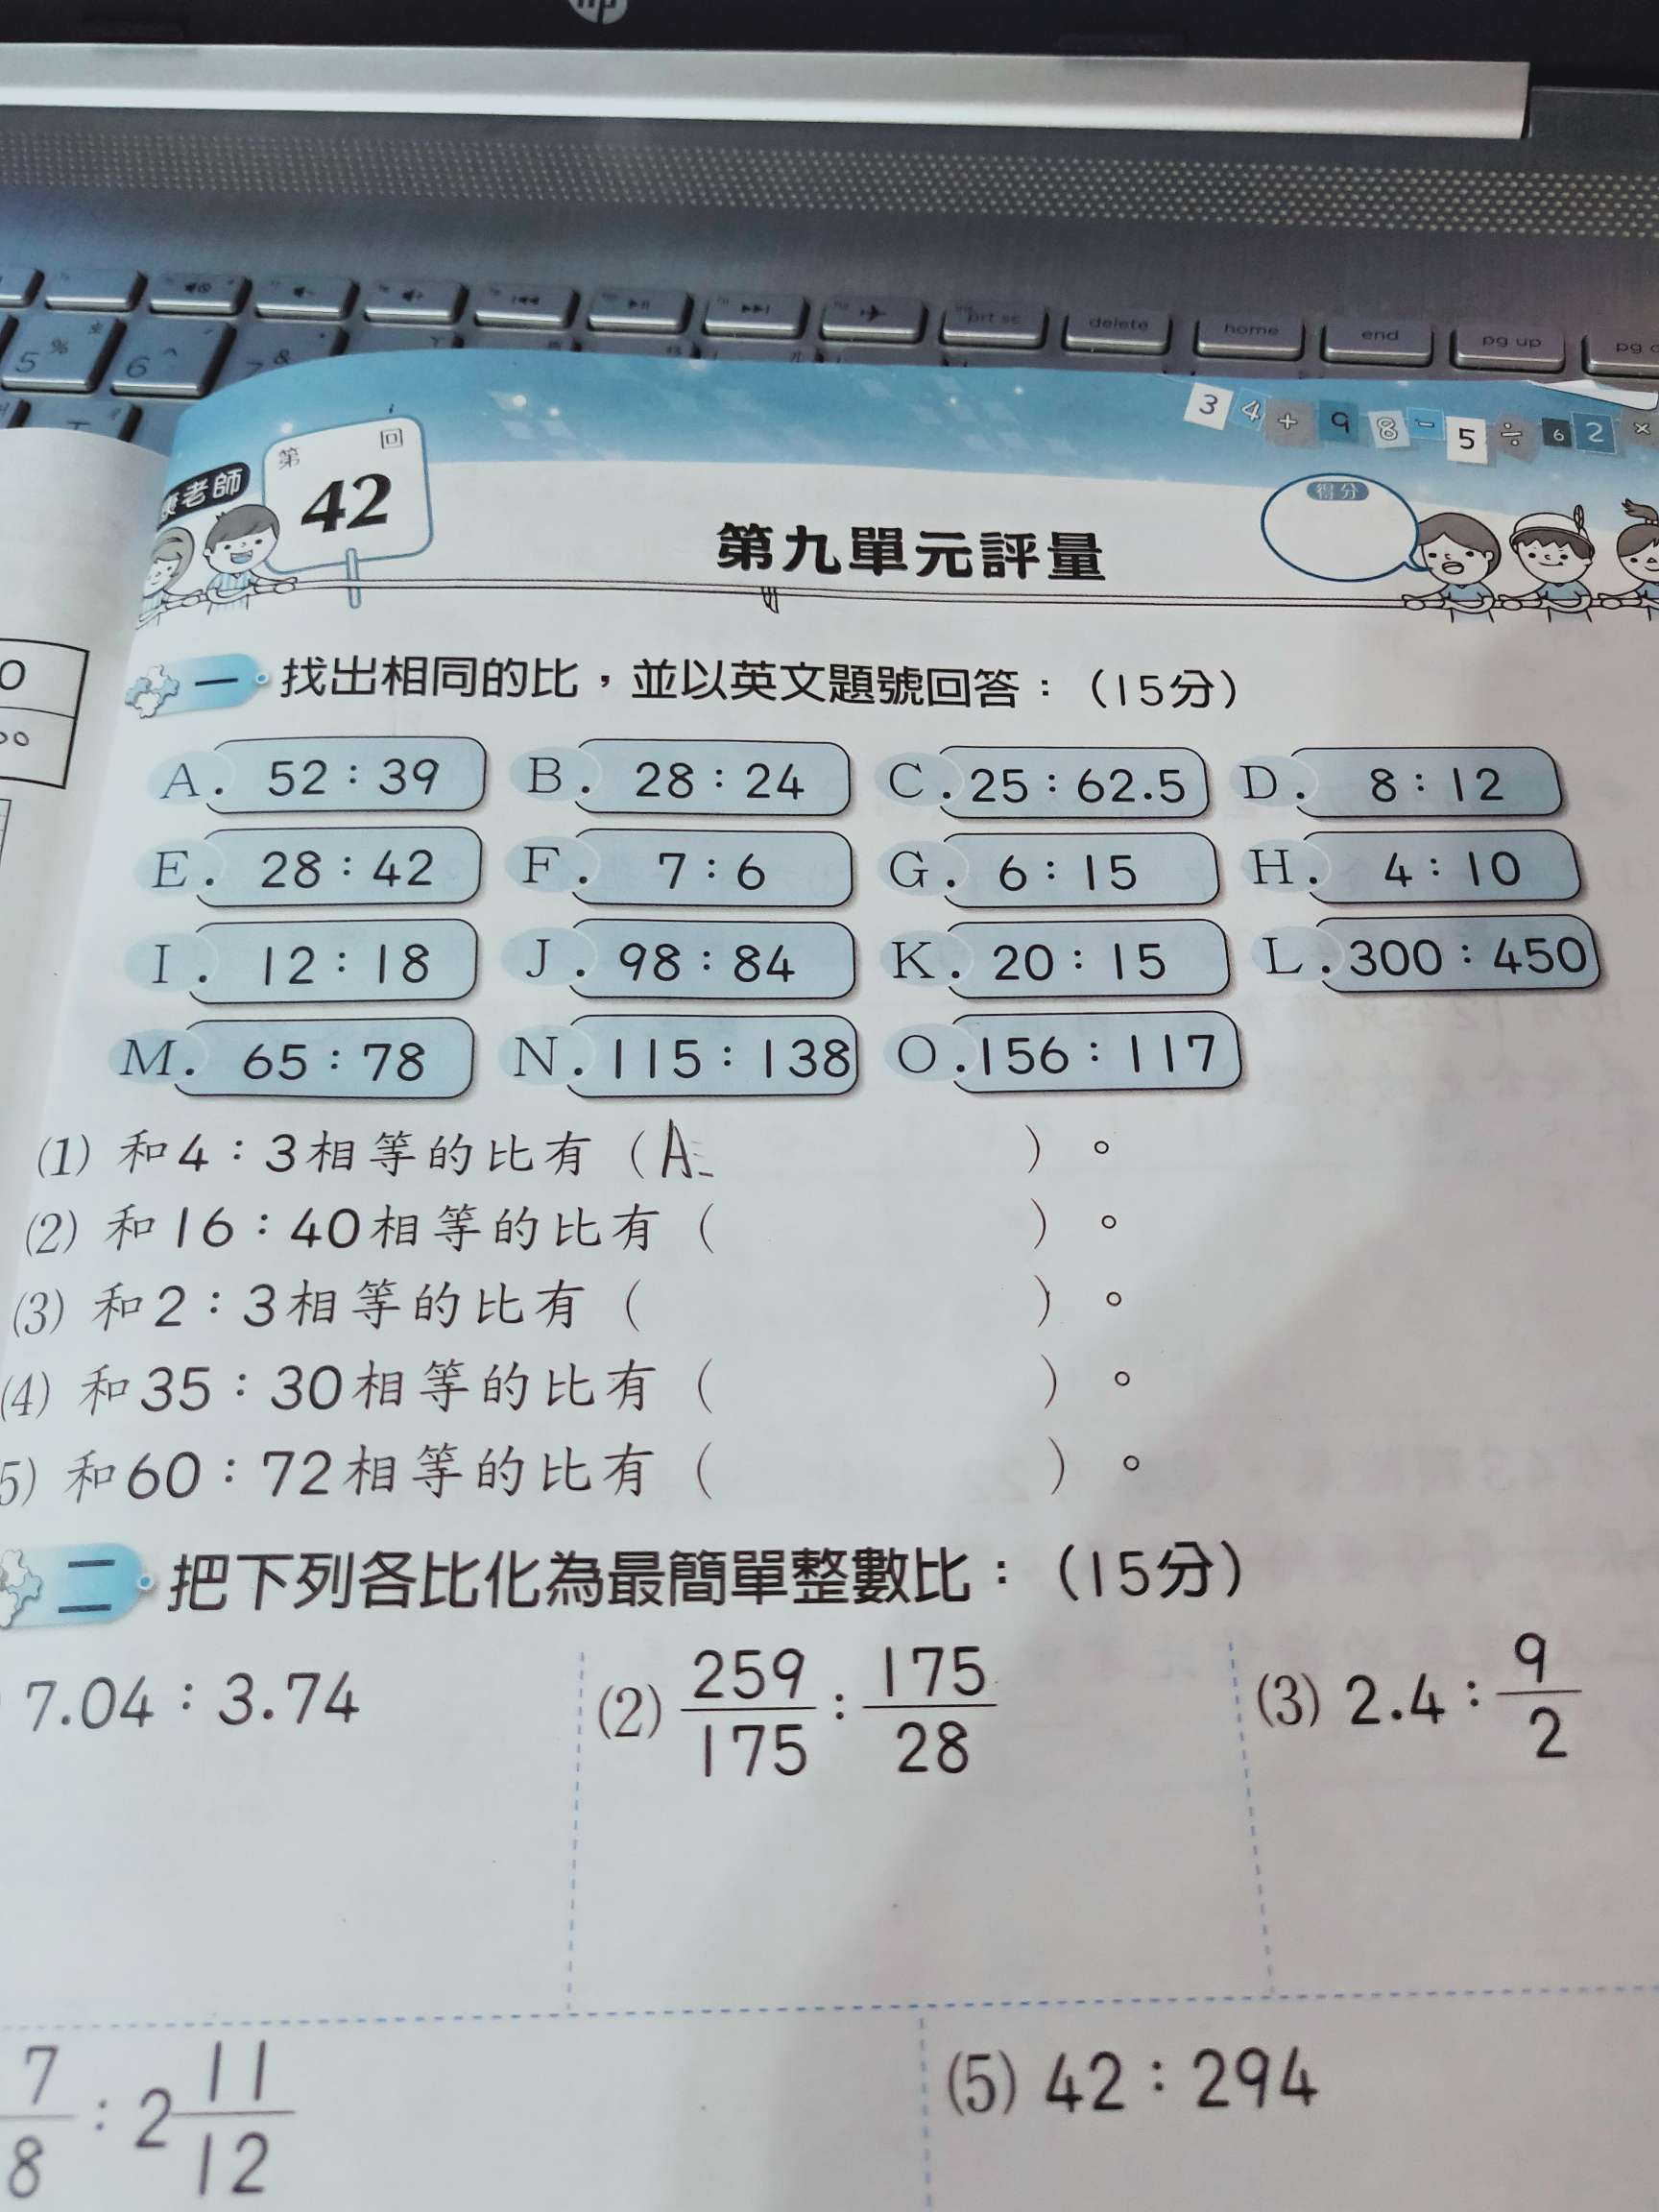 hp
delete
home
end
pg up
5 %
6 ^
7 &
3 4 + 9 8 - 5 ÷ 6 2 ×
康老師
第 42 回
第九單元評量
得分
一 找出相同的比，並以英文題號回答：（15分）
A. 52：39 B. 28：24 C. 25：62.5 D. 8：12
E. 28：42 F. 7：6 G. 6：15 H. 4：10
I. 12：18 J. 98：84 K. 20：15 L. 300：450
M. 65：78 N. 115：138 O. 156：117
(1) 和4：3相等的比有（A ）。
(2) 和16：40相等的比有（ ）。
(3) 和2：3相等的比有（ ）。
(4) 和35：30相等的比有（ ）。
5) 和60：72相等的比有（ ）。
二 把下列各比化為最簡單整數比：（15分）
7.04：3.74 (2) 259/175：175/28 (3) 2.4：9/2
7/8：2 11/12 (5) 42：294